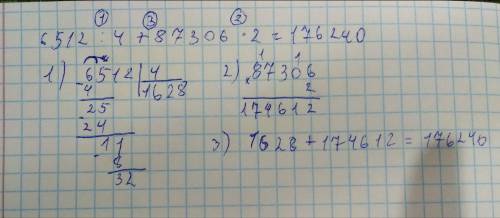 ① ③ ②
6512 : 4 + 87306 · 2 = 176240
1) 6512 | 4
4 | 1628
25
24
11
8
32
2) 87306
1 1
2
174612
3) 1628 + 174612 = 176240